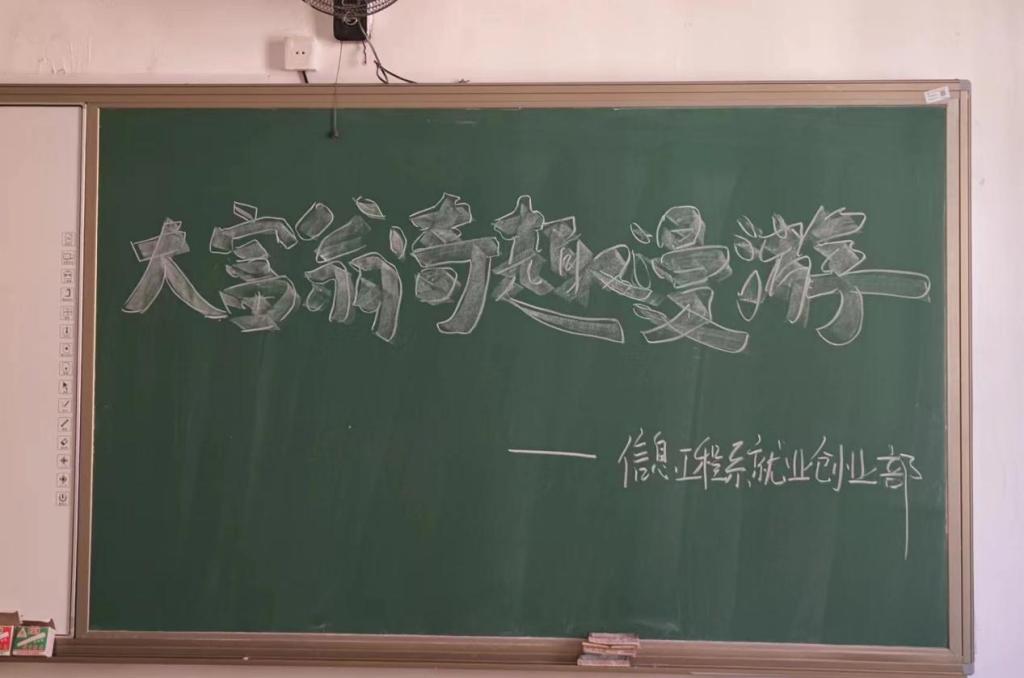 大富翁奇趣漫游
——信息工程系就业创业部